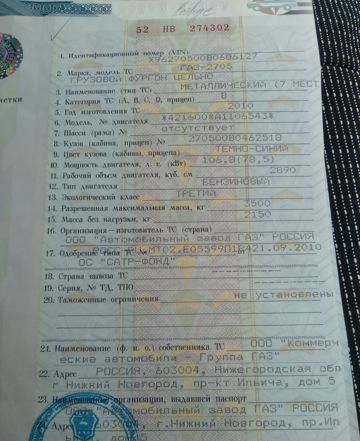 52 НВ 274302
1. Идентификационный номер (VIN) X96270500B0686127
2. Марка, модель ТС ГАЗ-2705
ГРУЗОВОЙ ФУРГОН ЦЕЛЬНО
3. Наименование (тип ТС) МЕТАЛЛИЧЕСКИЙ (7 МЕСТ
4. Категория ТС (A, B, C, D, прицеп) B
5. Год изготовления ТС 2010
6. Модель, № двигателя *421600*A1106543*
7. Шасси (рама) № отсутствует
8. Кузов (кабина, прицеп) № 270500B0462518
9. Цвет кузова (кабины, прицепа) ТЕМНО-СИНИЙ
10. Мощность двигателя, л. с. (кВт) 106,8(78,5)
11. Рабочий объем двигателя, куб. см 2890
12. Тип двигателя БЕНЗИНОВЫЙ
13. Экологический класс ТРЕТИЙ
14. Разрешенная максимальная масса, кг 3500
15. Масса без нагрузки, кг 2150
16. Организация – изготовитель ТС (страна)
ООО "Автомобильный завод ГАЗ" РОССИЯ
17. Одобрение типа ТС № от 21.09.2010
ОС "САТР-ФОНД"
18. Страна вывоза ТС
19. Серия, № ТД, ТПО
20. Таможенные ограничения не установлены
21. Наименование (ф. и. о.) собственника ТС ООО "Коммерч
еские автомобили - Группа ГАЗ"
22. Адрес РОССИЯ, 603004, Нижегородская обл
г Нижний Новгород, пр-кт Ильича, дом 5
23. Наименование организации, выдавшей паспорт
ООО "Автомобильный завод ГАЗ" РОССИЯ
24. Адрес 603004, г.Нижний Новгород, пр.Ил